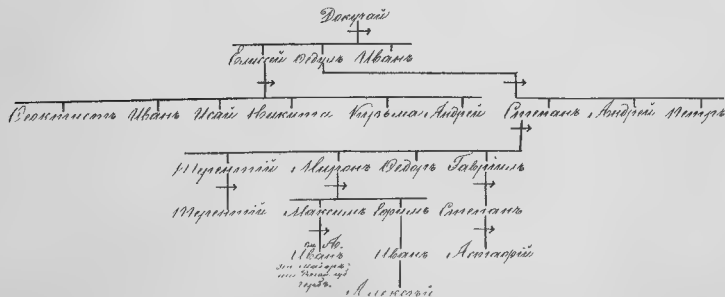 Докучай
Елисей Ѳедулъ Иванъ
Ѳеоктистъ Иванъ Исай Никита Кузьма Андрей Степанъ Андрей Петръ
Терентій Миронъ Ѳедоръ Гавріилъ
Терентій Максимъ Ефимъ Степанъ
Иванъ Иванъ Астафій
Алексѣй